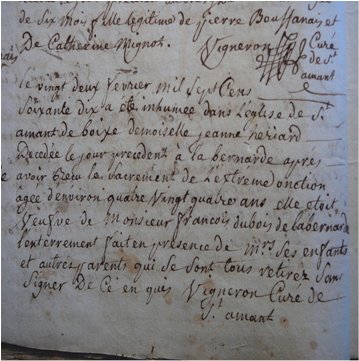 de six mois fille legitime de pierre Boussanais et
De Catherine Mignot. Vigneron Curé
de St
amant
Le vingt deux fevrier mil sept Cens
soixante dix a eté inhumée dans L'eglise de St
amant de boixe demoiselle jeanne heriard
Decedée le jour precedent à la bernarde aprés
avoir Recu le sacrement de L'extreme onction
agée d'environ quatre vingt quatre ans elle etoit
Veufve de Monsieur francois dubois de Labernard
l'enterrement fait en presence de Mrs Ses enfants
et autres parents qui se sont tous retirés sans
Signer De Ce en quis Vigneron Curé de
St amant.